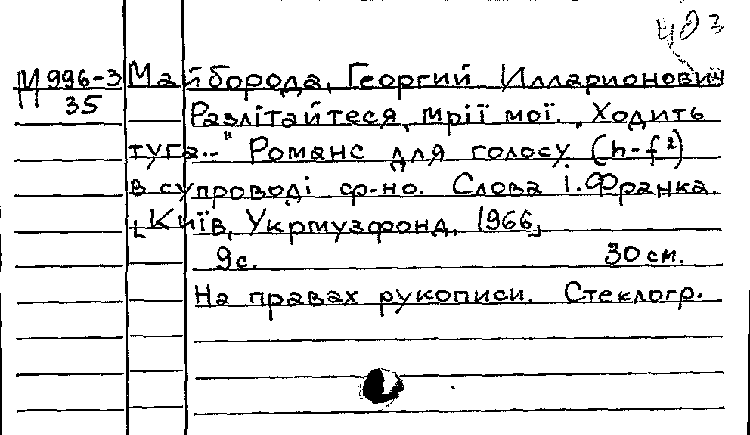 403
П 996-3 Майборода, Георгий Илларионович
35 Разлітайтеся, мрії мої. „Ходить
туга..." Романс для голосу (h-f²)
в супроводі ф-но. Слова І. Франка.
[Київ, Укрмузфонд, 1966]
9с. 30 см.
На правах рукописи. Стеклогр.